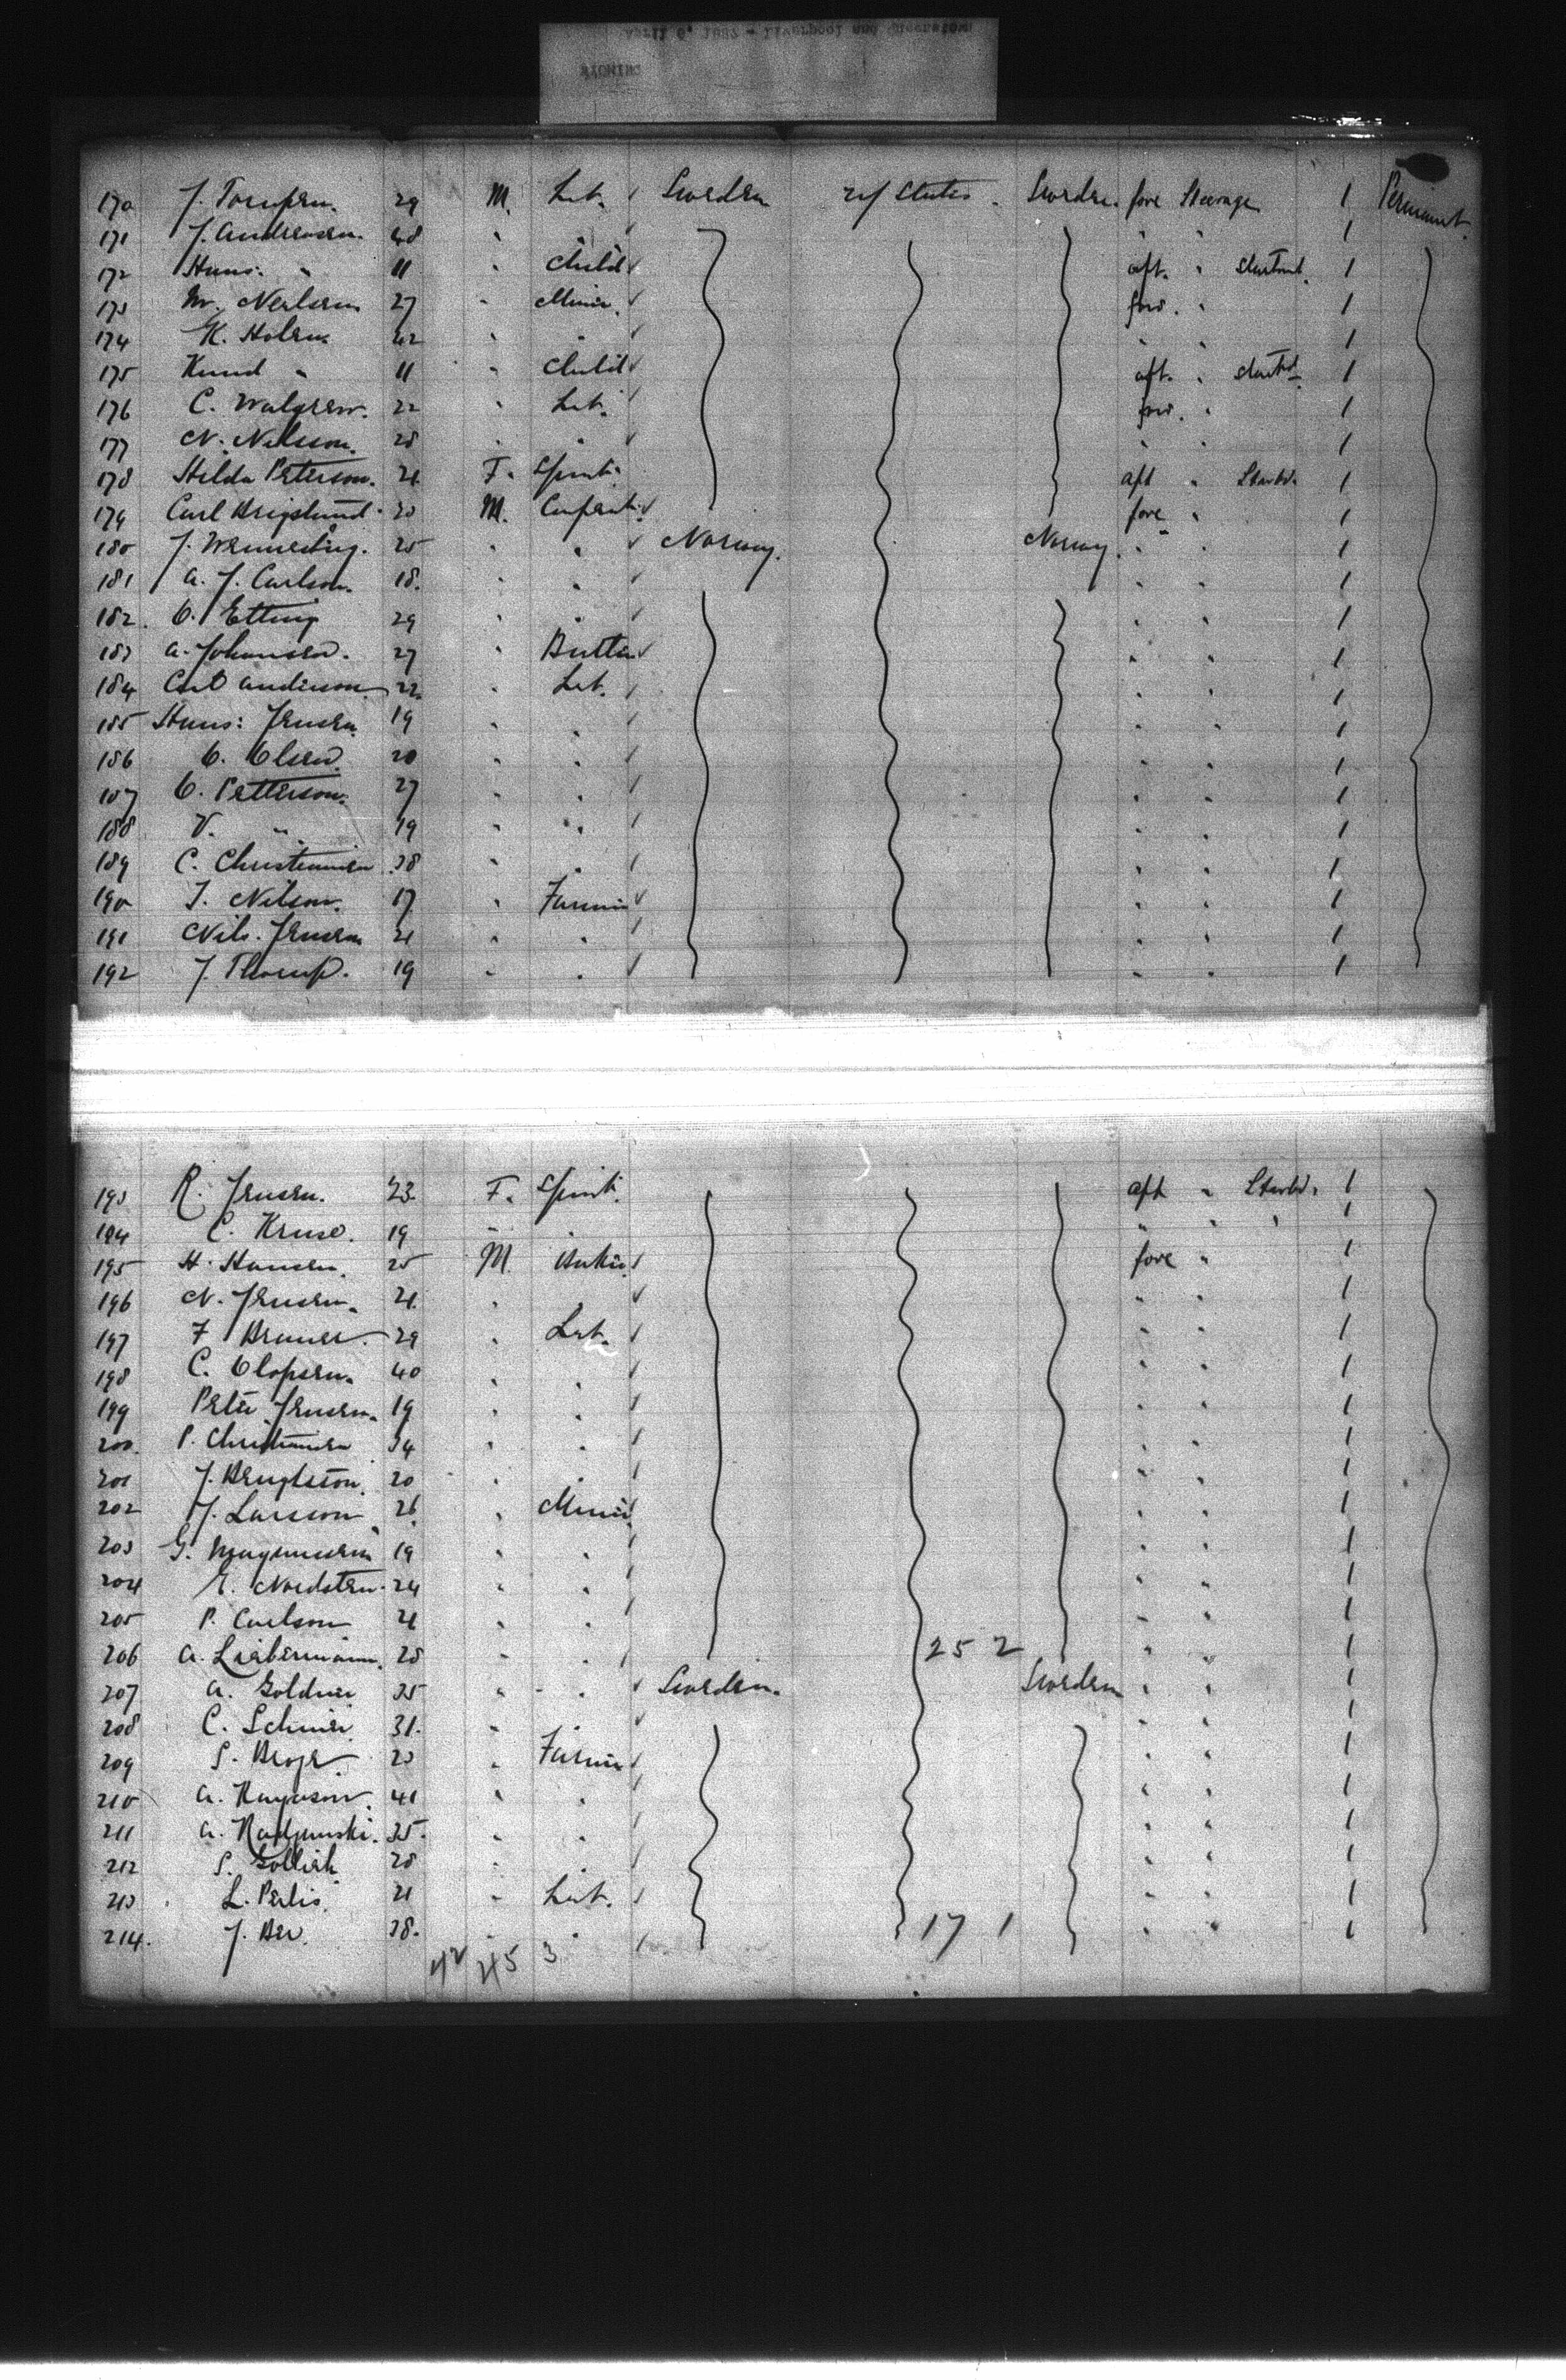 170 J. Torupsen. 29 M. Lab. Sweden u/ States. Sweden. fore Steerage 1 Permanent.
171 J. Andersen. 48 " " " " 1
172 Hans: " 11 " Child aft. " Starbrd. 1
173 M. Neilsen 27 " Miner. fwd. " 1
174 K. Holsen 42 " " " " 1
175 Knud " 11 " Child aft. " Starbd. 1
176 C. Walgren. 22 " Lab. fwd. " 1
177 N. Nilsson. 28 " " " " 1
178 Hilda Peterson. 21. F. Spinst. aft " Starbd. 1
179 Carl 20 M. Carpent. fore " 1
180 J. 25 " " Norway. Norway. " " 1
181 A. J. Carlson. 18. " " " " 1
182. O. Etting 29 " " " " 1
183 A. Johansen. 27 " " " 1
184 Carl Anderson 22. " Lab. " " 1
185 Hans: Jensen 19 " " " " 1
186 O. Olsen. 20 " " " " 1
187 O. Petterson. 27 " " " " 1
188 V. " 19 " " " " 1
189 C. Christiansen 38 " " " " 1
190 J. Nilson. 17 " Farmer " " 1
191 Nils. Jensen 21 " " " " 1
192 J. Thorup. 19 " " " " 1
193 R. Jensen. 23. F. Spinst. aft " Starbd. 1
194 C. Kruse. 19 " " " " " 1
195 H. Hansen. 25 M. Baker fore " 1
196 N. Jensen. 21. " " " " 1
197 F. Bruner. 29 " Lab. " " 1
198 C. Olofsen. 40 " " " " 1
199 Peter Jensen. 19 " " " " 1
200. P. Christiansen 34 " " " " 1
201 J. Bengtston. 20 " " " " 1
202 J. Larsson 26. " Miner " " 1
203 G. Magnussen 19 " " " " 1
204 E. Nordsten. 24 " " " " 1
205 P. Carlson 21 " " " " 1
206 A. Liebermann. 28 " " 25 2 " " 1
207 A. Goldner 35 " " Sweden. Sweden " " 1
208 C. 31. " " " " 1
209 S. 23 " Farmer " " 1
210 A. 41 " " " " 1
211 A. 35. " " " " 1
212 S. 28 " " " " 1
213 L. Perlis. 21 " Lab. " " 1
214. J. Ber. 38. " " 17 1 " " 1
42 45 3